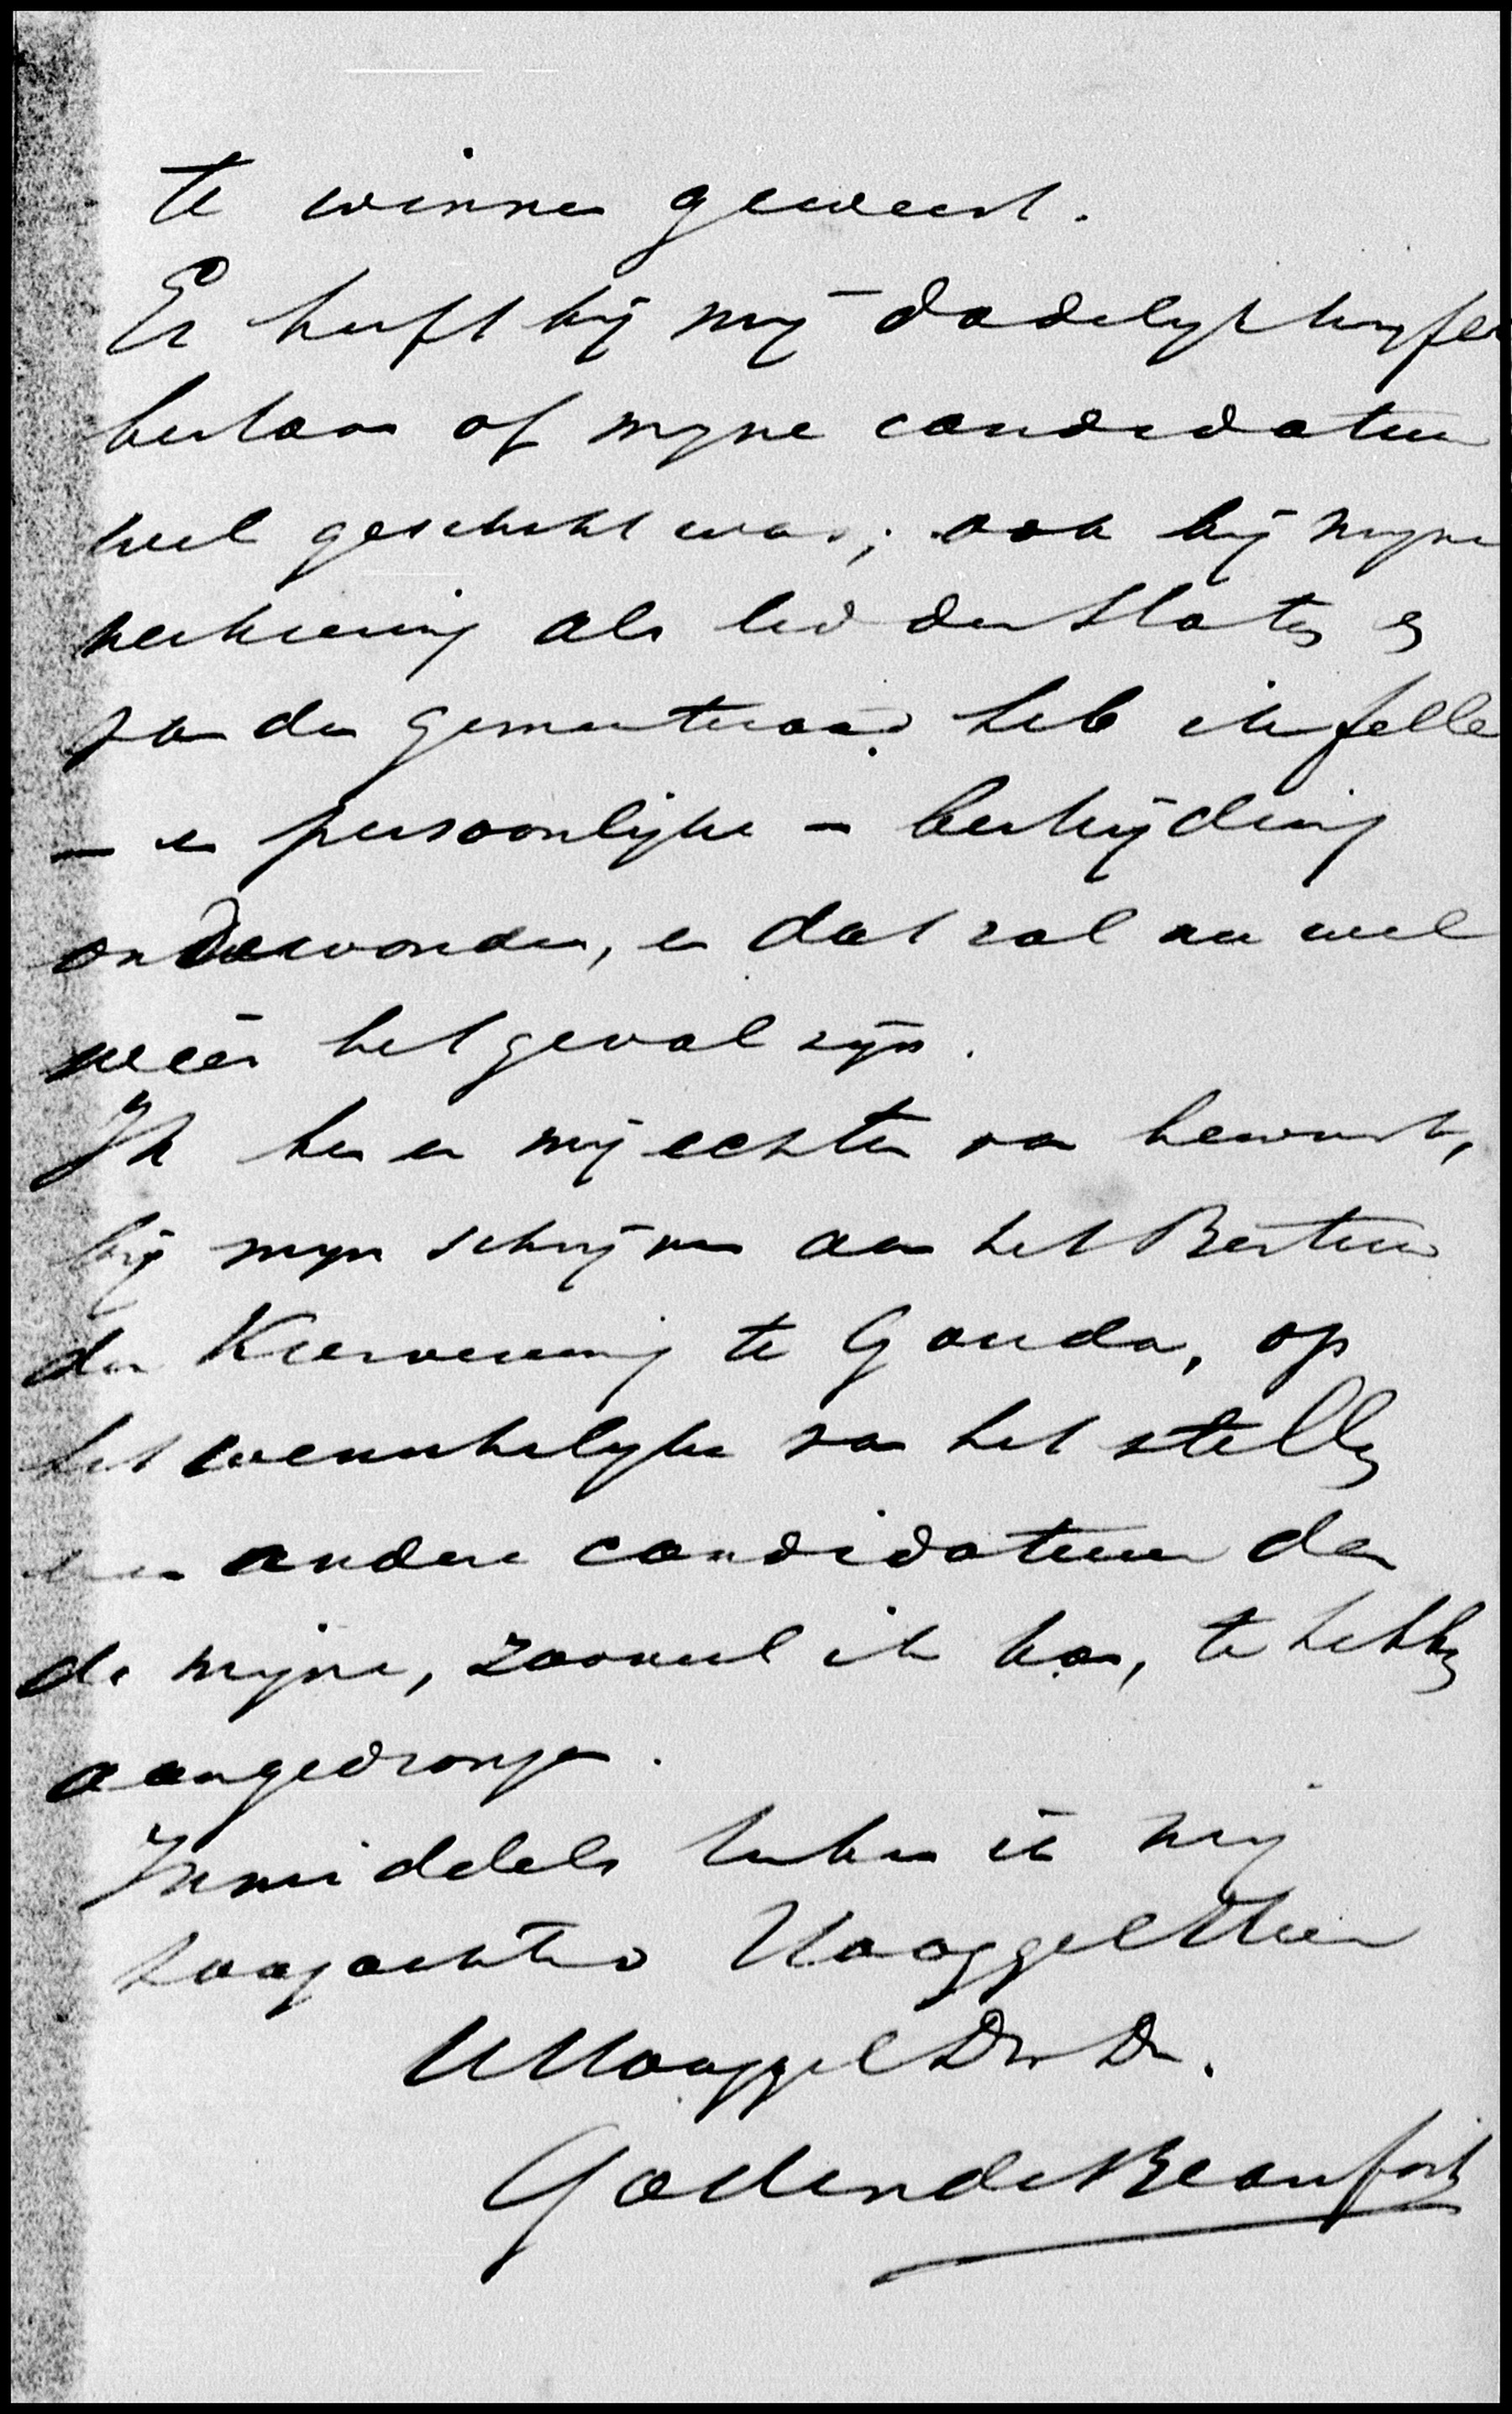 te winnen geweest.
Er heeft bij mij dadelijk twijfel
bestaan of mijne candidatuur
wel geschikt was; ook bij mijne
verkiezing als lid der Staten en
van den gemeenteraad heb ik felle
- en persoonlijke - bestrijding
ondervonden, en dat zal nu wel
weêr het geval zijn.
Ik ben er mij echter van bewust,
bij mijn schrijven aan het Bestuur
der Kiesvereenig te Gouda, op
het wenschelijke van het stellen
eener andere candidatuur dan
de mijne, zooveel ik kon, te hebben
aangedrongen.
Inmiddels teeken ik mij
hoogachtend HooggelHeer
UHooggel Dw Dr.
J A Roest van Limburg